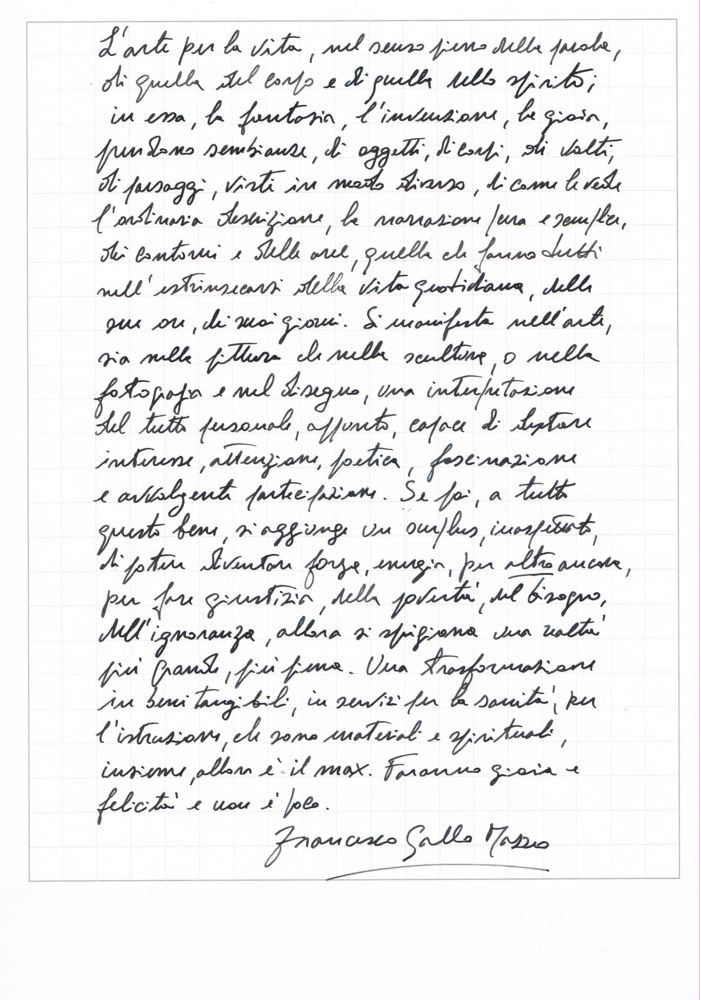 L'arte per la vita, nel senso pieno della parola,
di quella del corpo e di quella dello spirito;
in essa, la fantasia, l'invenzione, la gioia,
prendono sembianze, di oggetti, di corpi, di volti,
di paesaggi, visti in modo diverso, di come le vede
l'ordinaria descrizione, la narrazione pura e semplice,
dei contorni e delle aree, quella che fanno tutti
nell'estrinsecarsi della vita quotidiana, delle
sue ore, dei suoi giorni. Si manifesta nell'arte,
sia nella pittura che nella scultura, o nella
fotografia e nel disegno, una interpretazione
del tutto personale, appunto, capace di destare
interesse, attenzione, poetica, fascinazione
e avvolgente partecipazione. Se poi, a tutto
questo bene, si aggiunge un surplus, inaspettato,
di poter diventare forza, energia, per altro ancora,
per fare giustizia, della povertà, del bisogno,
dell'ignoranza, allora si sprigiona una realtà
più grande, più piena. Una trasformazione
in beni tangibili, in servizi per la sanità, per
l'istruzione, che sono materiali e spirituali,
insieme, allora è il max. Faranno gioia e
felicità e non è poco.
Francesco Gallo Mazzeo